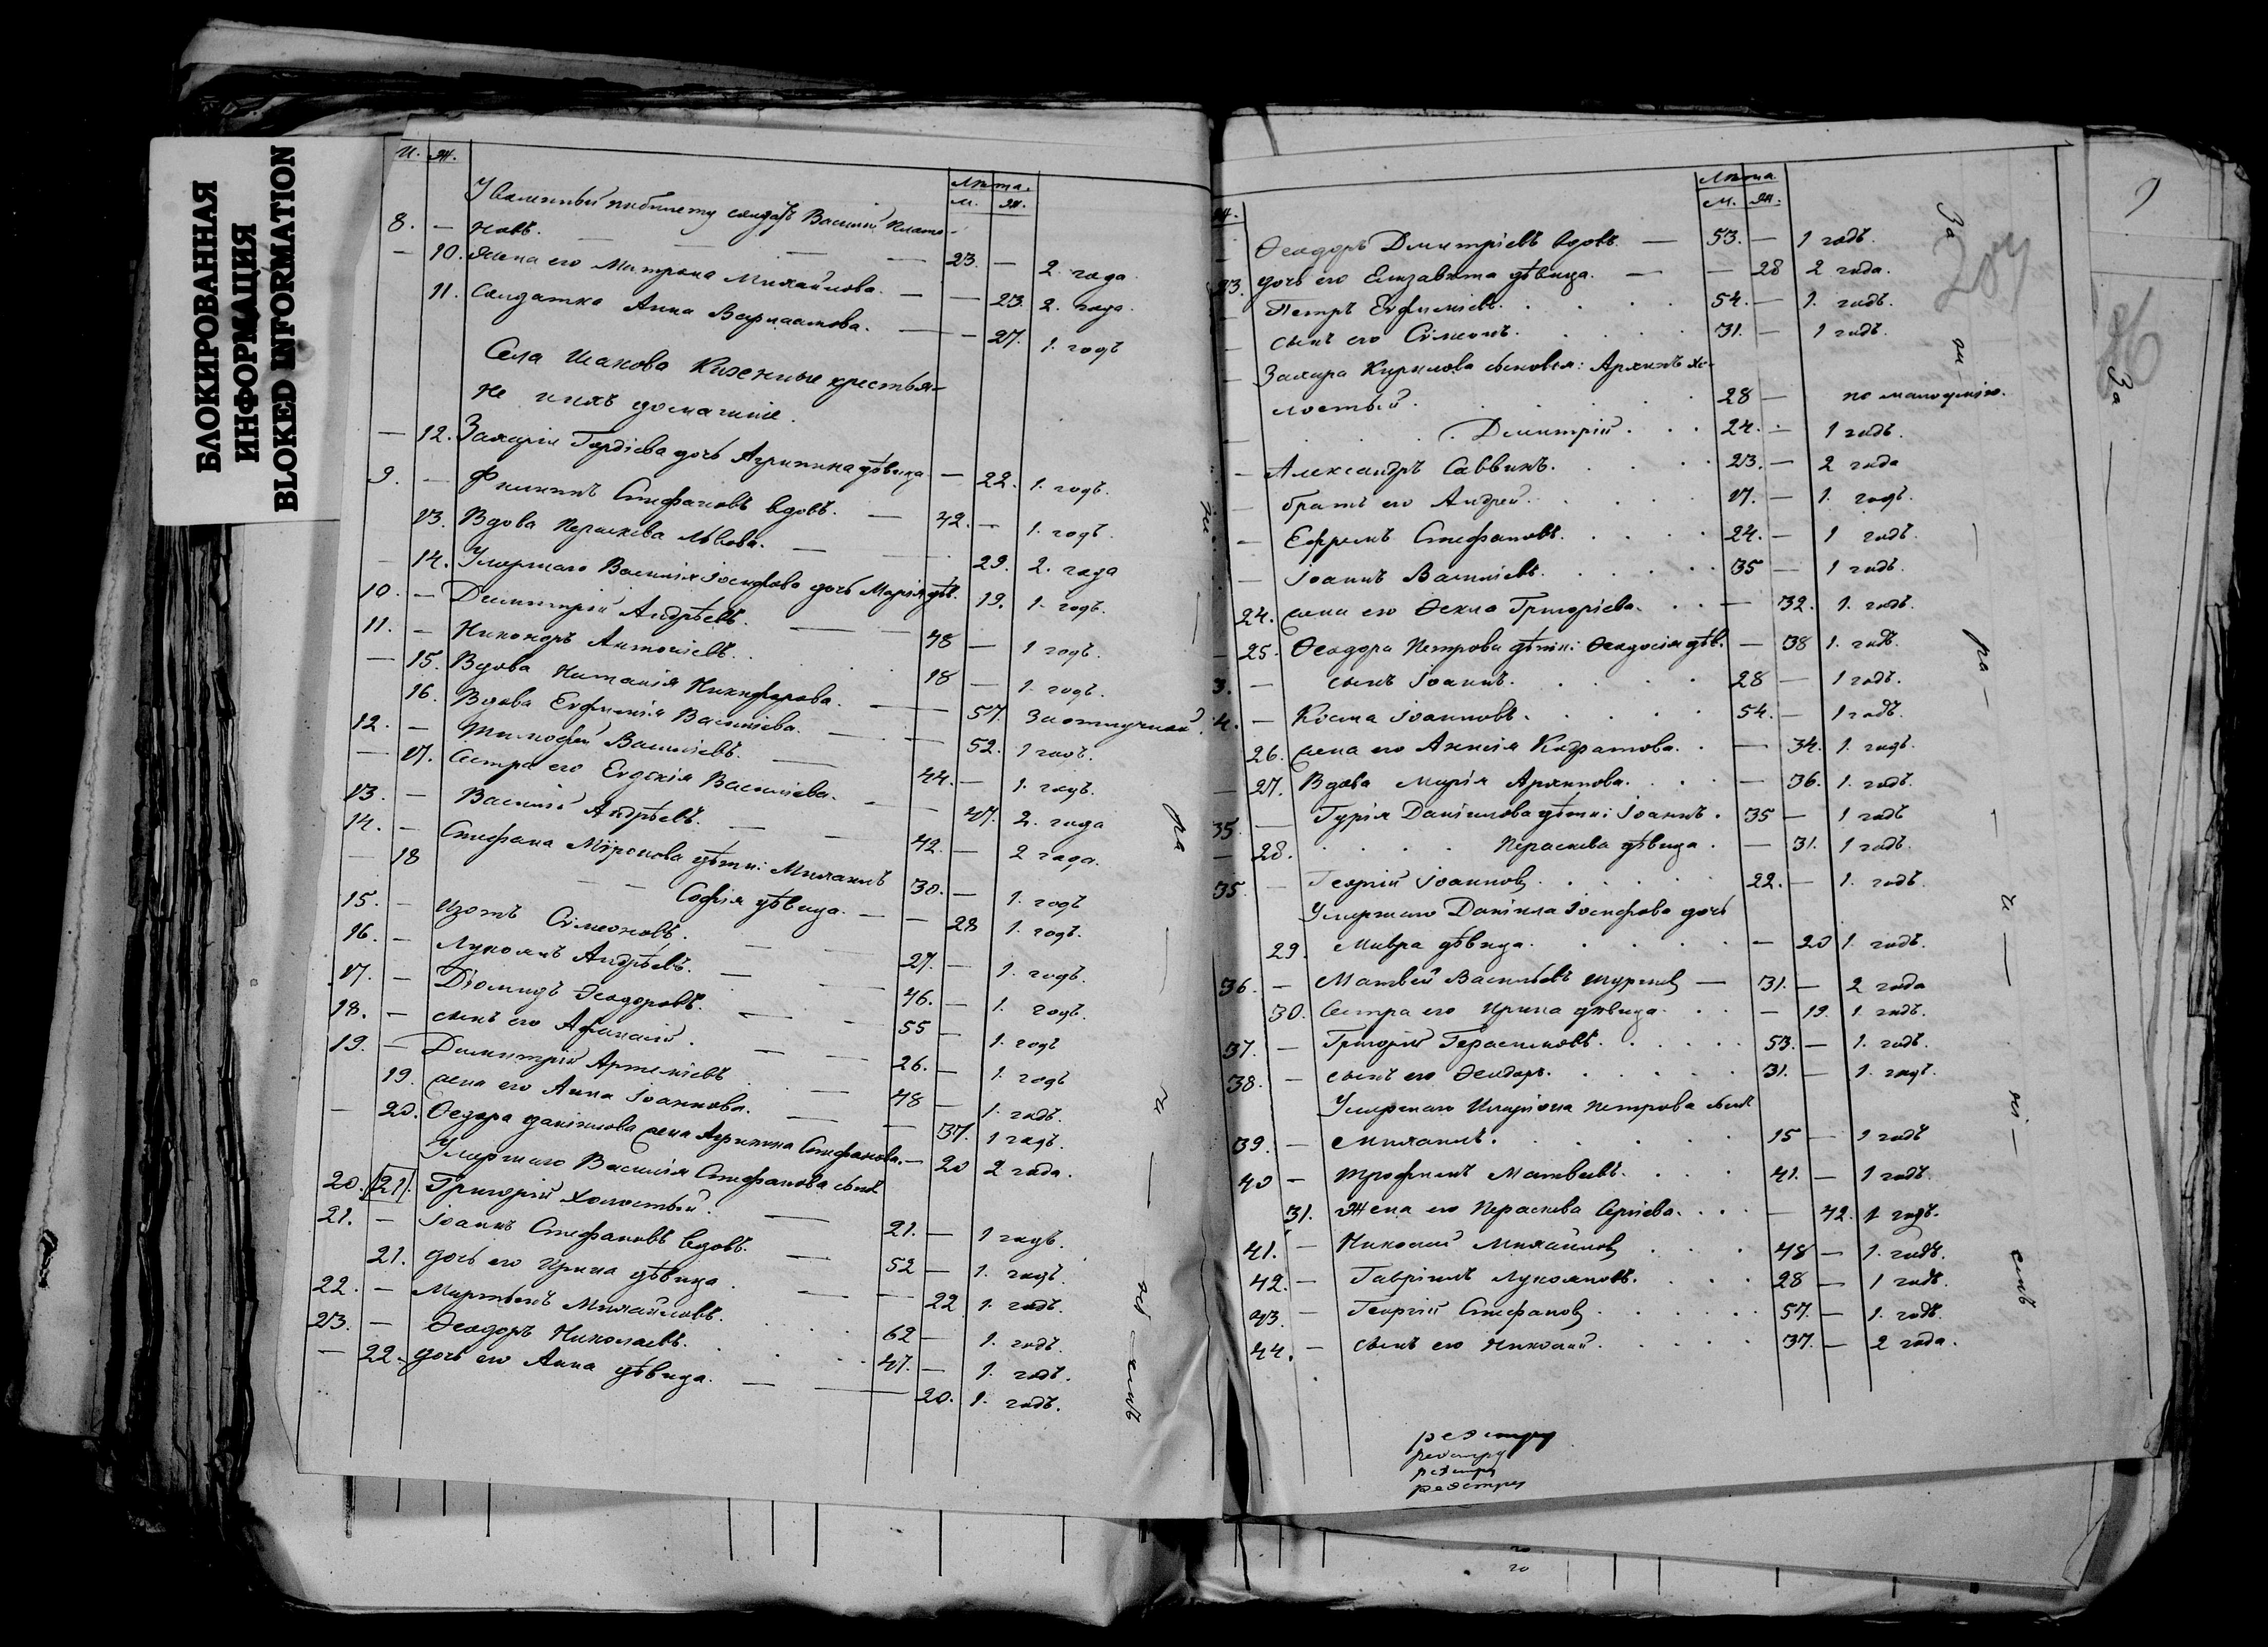 БЛОКИРОВАННАЯ
ИНФОРМАЦИЯ
BLOKED INFORMATION
М. Ж. Лѣта.
М. Ж.
Уволенный по билету солдатъ Василій Плато-
8. — новъ. — 23. — 2. года
— 10. Жена его Матрона Михайлова. — — 23. 2. года.
11. Солдатка Анна Варлаамова. — — 27. 1. годъ
Села Казенные крестья-
не и ихъ домашніе.
— 12. Захарія Гордіева дочь Агрипина дѣвица — 22. 1. годъ.
9. — Филиппъ Стефановъ вдовъ. — 42. — 1. годъ.
13. Вдова Параскева Львова. — — 29. 2. года
— 14. Умершаго Василія Іосифова дочь Марія дѣв. 19. 1. годъ.
10. — Димитрій Андрѣевъ. — 48 — 1 годъ.
11. — Никоноръ Антоніевъ. 18 — 1. годъ.
— 15. Вдова Наталія Никифорова. — 57. За отлучкой.
16. Вдова Евфимія Василіева. — 52. 1 годъ.
12. — Тимофей Василіевъ. — 44. — 1. годъ.
— 17. Сестра его Евдокія Василіева. — 47. 2. года
13. — Василій Андрѣевъ. — 42. — 2 года.
14. — Стефана Мѵронова дѣти: Михаилъ 30. — 1. годъ
— 18 Софія дѣвица. — — 28 1. годъ.
15. — Изотъ Сѵмеоновъ. — 27. — 1. годъ.
16. — Лукоянъ Андрѣевъ. — 46. — 1. годъ.
17. — Діомидъ Ѳеодоровъ. — 55 — 1. годъ
18. — сынъ его Афанасій. — 26. — 1. годъ
19. — Димитрій Артеміевъ — 48 — 1. годъ.
19. жена его Анна Іоаннова. — 37. 1 годъ.
— 20. Ѳедора Даніилова жена Агрипина Стефанова. — 20 2 года.
Умершаго Василія Стефанова сынъ
20. 21. Григорій холостый. — 21. — 1 годъ.
21. — Іоаннъ Стефановъ вдовъ. — 52 — 1. годъ.
21. дочь его Ирина дѣвица. — — 22 1. годъ.
22. — Мартынъ Михайловъ. 62 — 1. годъ.
23. — Ѳеодоръ Николаевъ. 47. — 1. годъ.
— 22. дочь его Анна дѣвица. — — 20. 1. годъ.
Ж. Лѣта
М. Ж.
— Ѳеодоръ Димитріевъ вдовъ. — 53. — 1 годъ.
23. дочь его Елизавета дѣвица. — — 28 2 года.
— Петръ Евфиміевъ. 54. — 1. годъ.
— сынъ его Сѵмеонъ. 31. — 1 годъ.
— Захара Кирилова сыновья: Архипъ хо-
лостый. 28 — по
— Димитрій. 24. — 1 годъ.
— Александръ Саввинъ. 23. — 2 года
— братъ его Андрей. 17. — 1. годъ.
— Ефремъ Стефановъ. 24. — 1 годъ.
— Іоаннъ Василіевъ. 35 — 1 годъ.
24. жена его Ѳекла Григоріева. — 32. 1. годъ.
— 25. Ѳеодора Петрова дѣти: Ѳеодосія дѣв. — 38 1. годъ.
3. — сынъ Іоаннъ. 28 — 1 годъ.
4. — Косма Іоанновъ. 54. — 1 годъ.
26. жена его Ксенія Кодратова. — 34. 1. годъ.
— 27. Вдова Марія Архипова. — 36. 1. годъ.
35. — Гурія Даніилова дѣти: Іоаннъ. 35 — 1 годъ
— 28. Параскева дѣвица. — 31. 1 годъ.
35. — Георгій Іоанновъ. 22. — 1. годъ.
Умершаго Даніила Іосифова дочь
29. Мавра дѣвица. — 20 1. годъ.
36. — Матвей Васильевъ — 31. — 2 года
30. Сестра его Ирина дѣвица. — 19. 1. годъ.
37. — Григорій Герасимовъ. 53. — 1. годъ.
38. — сынъ его Ѳеодоръ. 31. — 1. годъ.
Умершаго Иларіона Петрова сынъ
39. — Михаилъ. 15 — 1 годъ
40 — Трофимъ Матвѣевъ. 41. — 1 годъ.
31. Жена его Параскева Сергіева. — 42. 1 годъ.
41. — Николай Михайловъ 48 — 1. годъ.
42. — Гавріилъ Лукояновъ. 28 — 1 годъ.
43. — Георгій Стефановъ. 57. — 1. годъ.
44. — сынъ его Николай. 37. — 2 года.
реестру
реестру
реестру
реестру